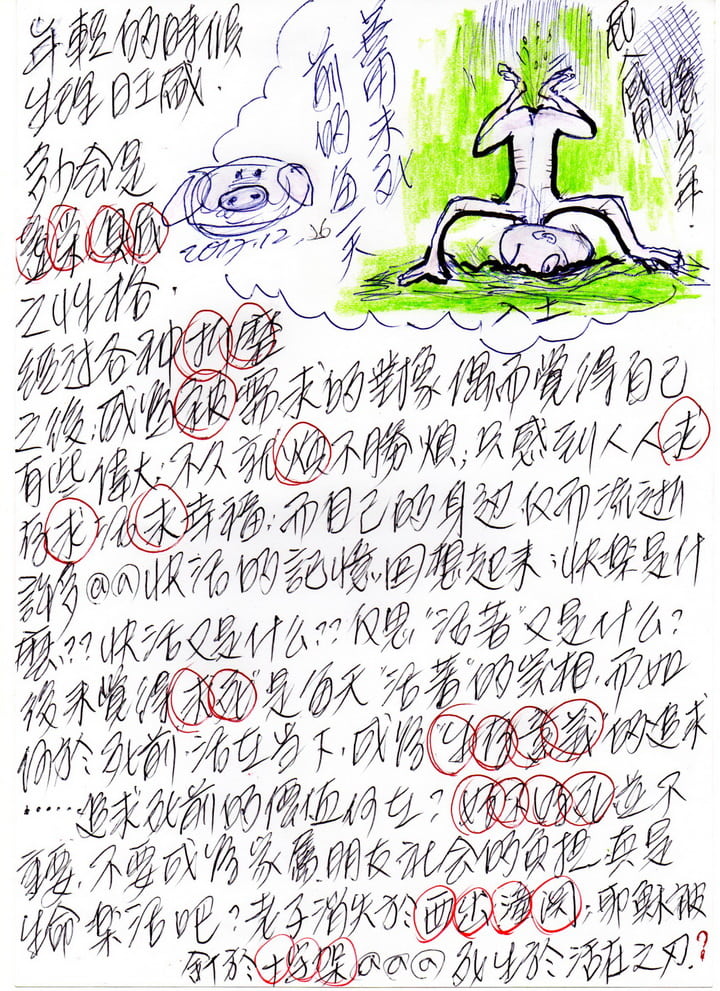 年輕的時候
生理旺盛.
多少會是
之性格.
經過各种折磨
之後,成為被需求的對像偶而覺得自己
有些偉大;不久就煩不勝煩;只感到人人求
存求活求幸福;而自己的身边仅而流逝
許多@@快活的記憶.回想起來;快樂是什
麼??快活又是什么??仅思"活著"又是什么?
後來覺得"求死"是每天"活著"的真相.而如
何於死前,活在当下,成為"生存意義"的追求
……追求死前的價值何在?好不好死並不
重要,不要成為家屬朋友社会的負担,真是
生命樂活吧?老子消失於西出潼関;耶穌被
釘於十字架@@@死生於活在之刃?
善用未死
前的每一天
2017.12.26
憶当年
入土